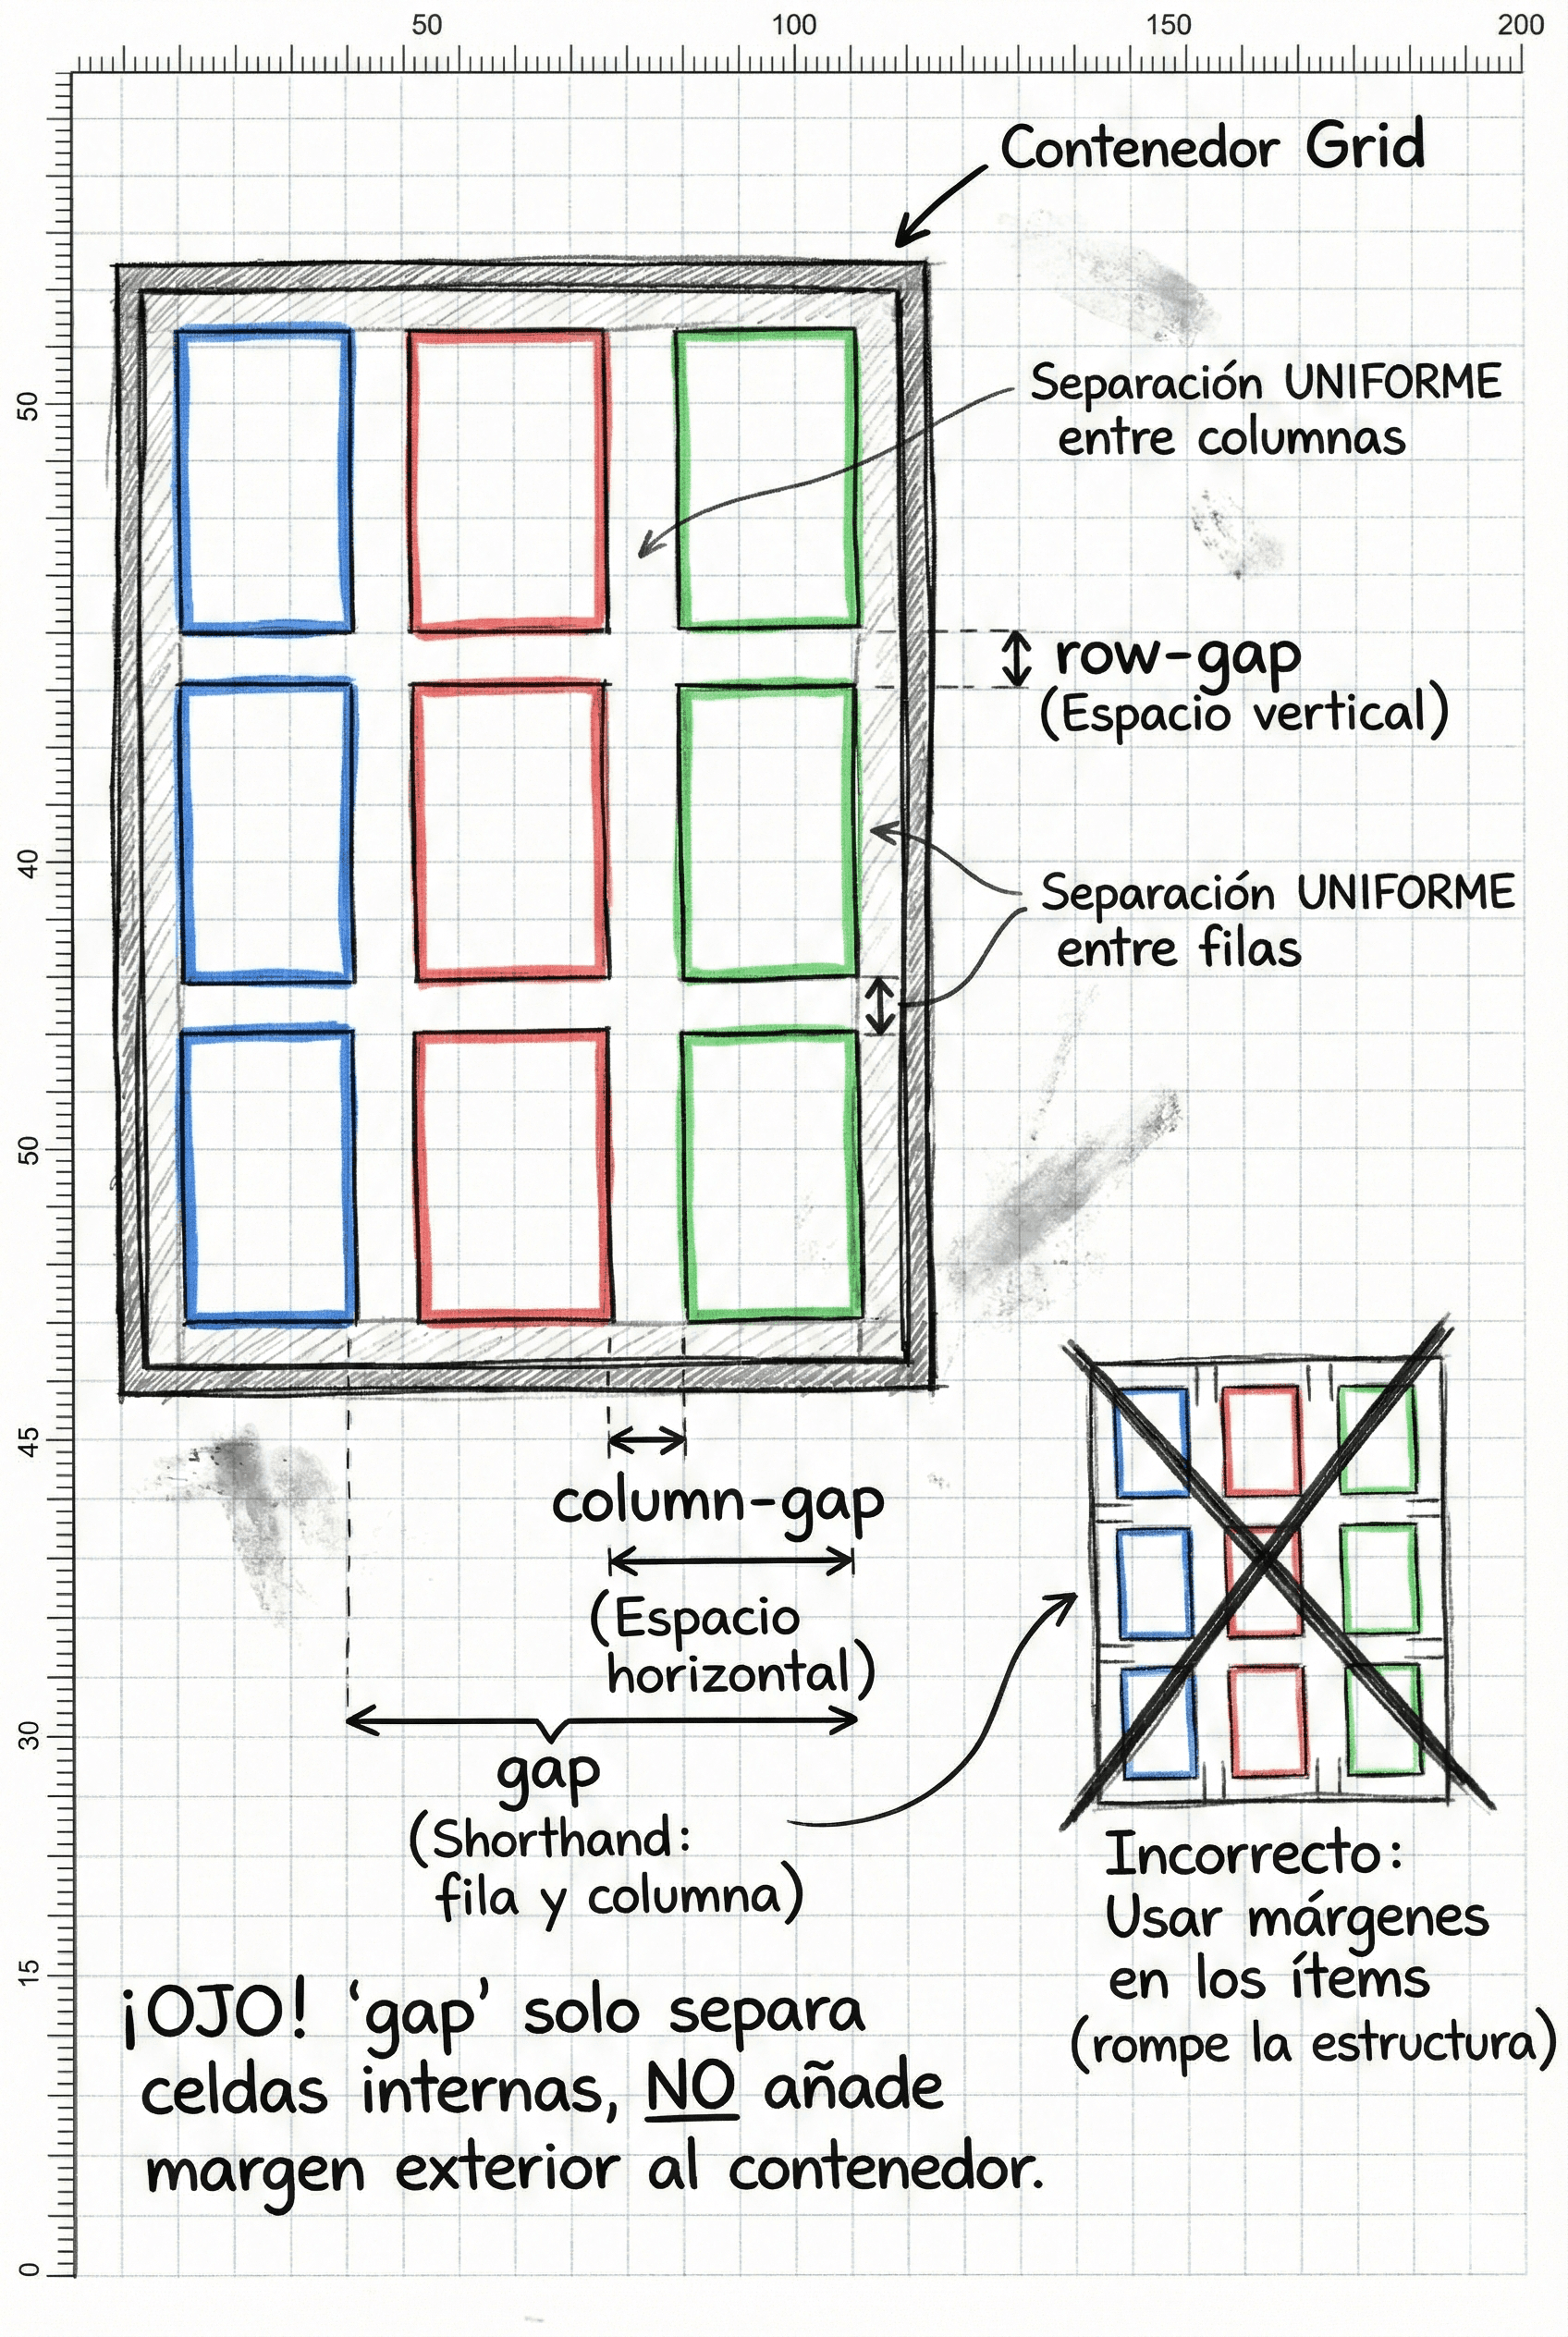 50 100 150 200
Contenedor Grid
50
Separación UNIFORME
entre columnas
row-gap
(Espacio vertical)
40
Separación UNIFORME
entre filas
50
45
column-gap
(Espacio
horizontal)
30
gap
(Shorthand:
fila y columna)
Incorrecto:
Usar márgenes
en los ítems
(rompe la estructura)
15
¡OJO! ‘gap’ solo separa
celdas internas, NO añade
margen exterior al contenedor.
0